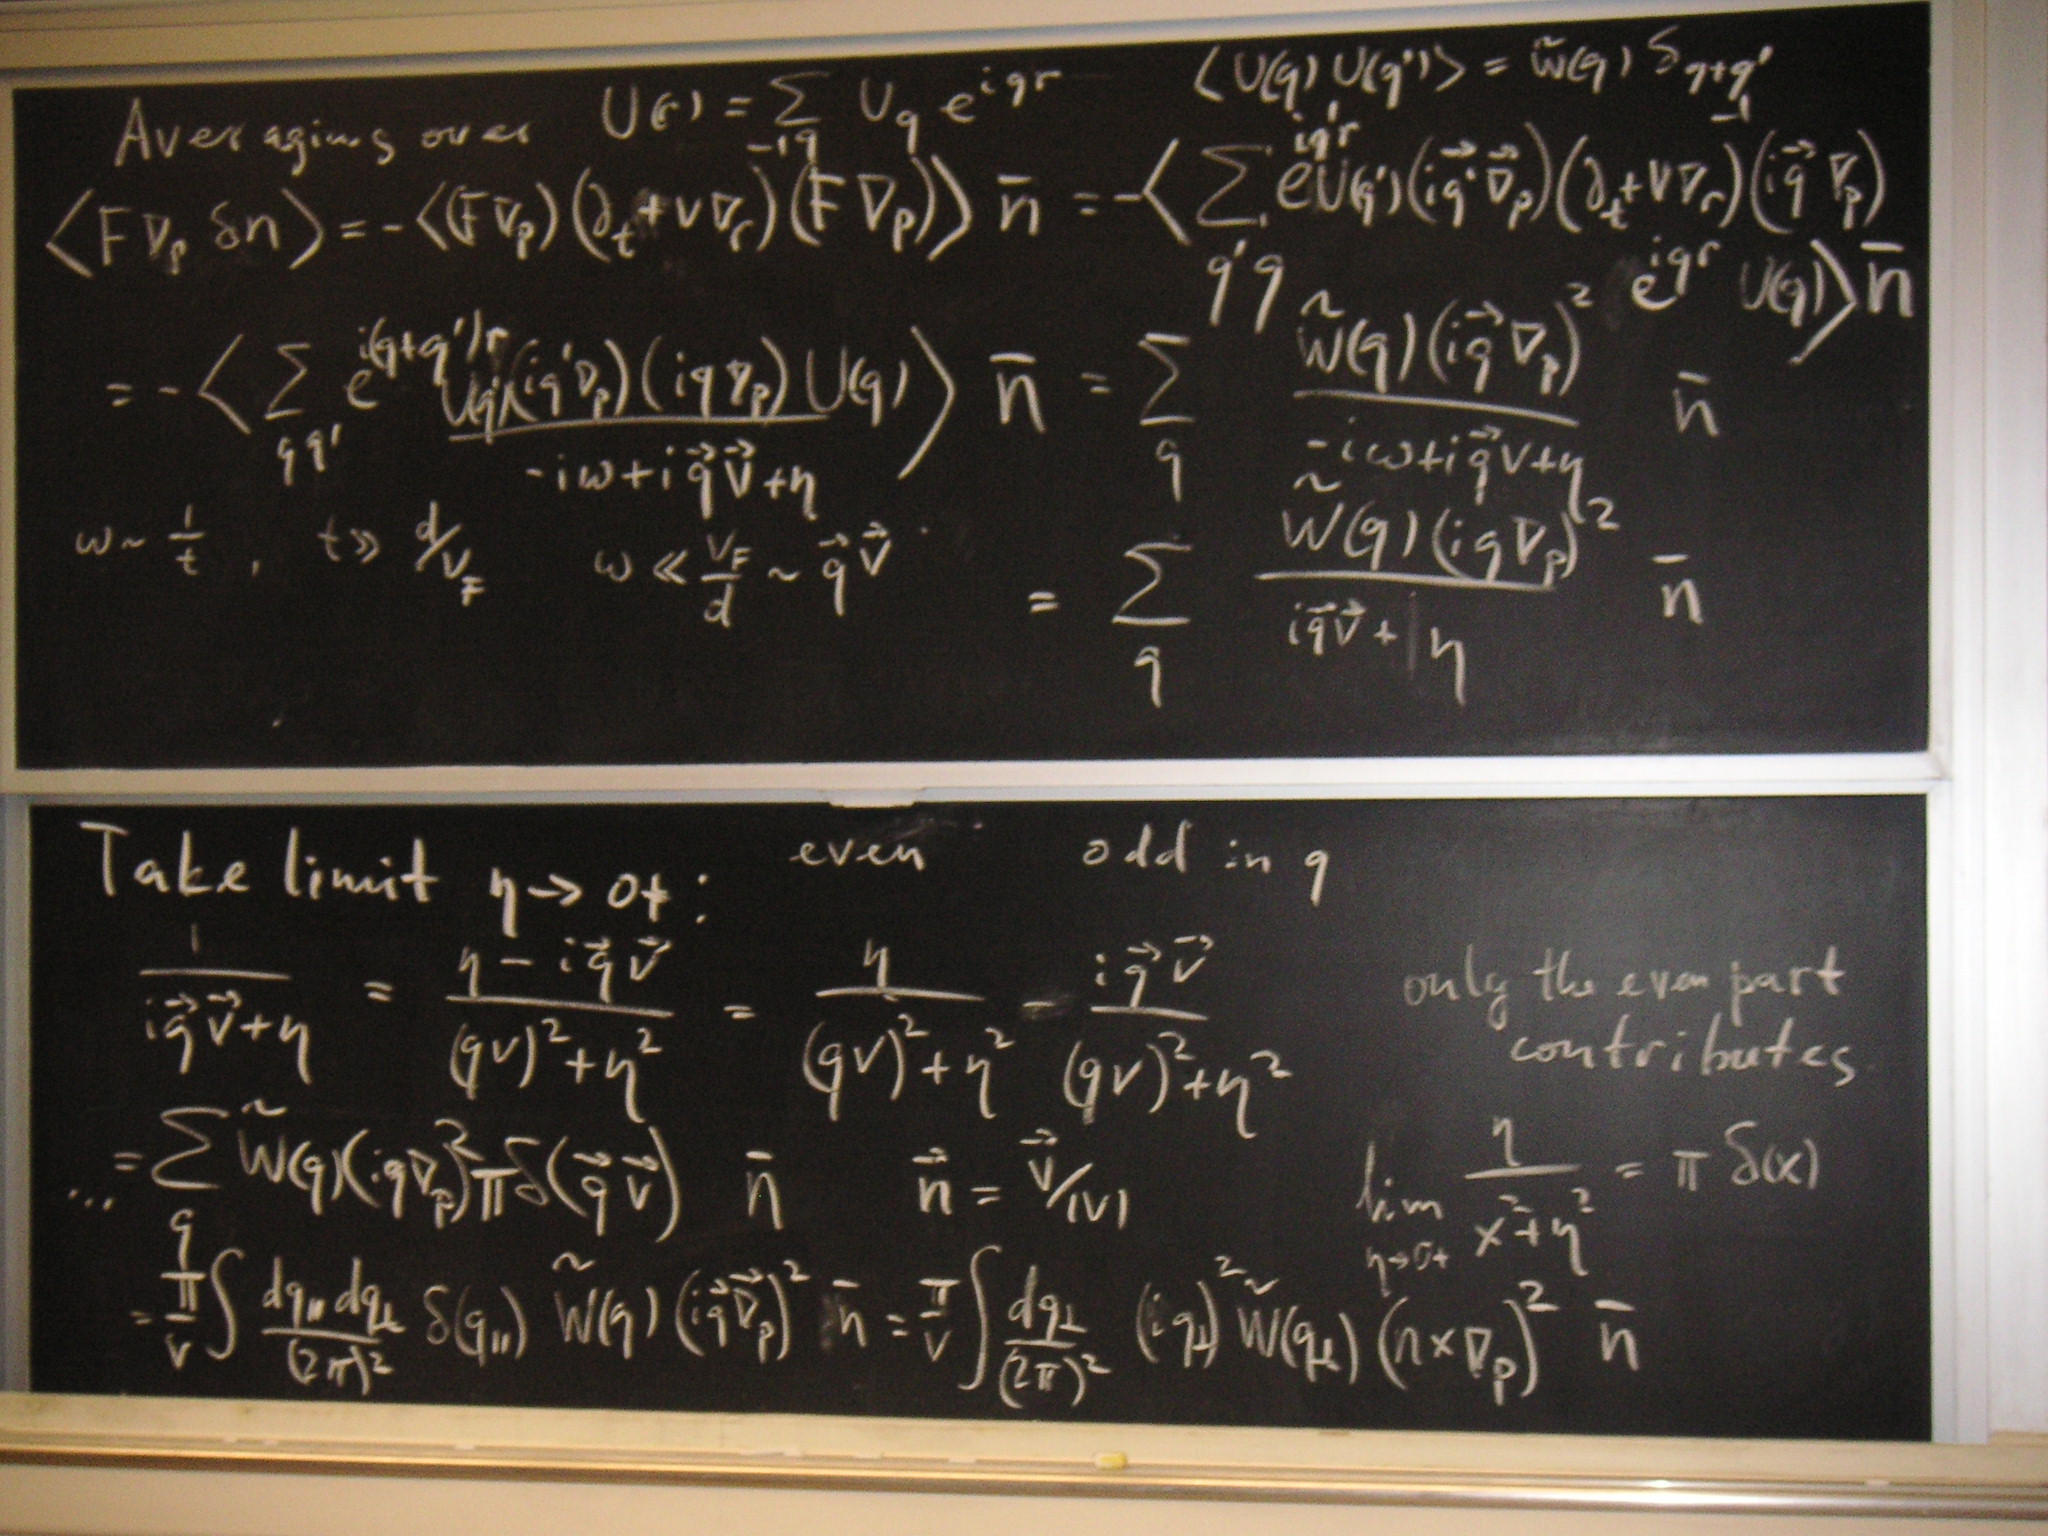 Averaging over U(r) = Σ_q U_q e^{iqr} ⟨U(q) U(q')⟩ = w̃(q) δ_{q+q'}
⟨F ∇_p δn⟩ = -⟨(F ∇_p)(∂_t + v∇_r)^{-1}(F ∇_p)⟩ n̄ = -⟨Σ_{q'q} e^{iq'r} U(q')(iq⃗'∇⃗_p)(∂_t + v∇_r)^{-1}(iq⃗ ∇_p) e^{iqr} U(q)⟩ n̄
= -⟨Σ_{qq'} e^{i(q+q')r} U(q')(iq'∇_p)(iq∇_p) U(q) / (-iω + iq⃗v⃗ + η)⟩ n̄ = Σ_q W̃(q)(iq⃗∇_p)² / (-iω + iq⃗v + η) n̄
ω ~ 1/t , t ≫ d/v_F ω ≪ v_F/d ~ q⃗v⃗ = Σ_q W̃(q)(iq∇_p)² / (iq⃗v⃗ + η) n̄
Take limit η → 0+ : even odd in q
1/(iq⃗v⃗ + η) = (η - iq⃗v⃗)/((qv)² + η²) = η/((qv)² + η²) - iq⃗v⃗/((qv)² + η²) only the even part
contributes
... = Σ_q W̃(q)(iq∇_p)² π δ(q⃗v⃗) n̄ n⃗ = v⃗/|v| lim_{η→0+} η/(x² + η²) = π δ(x)
= π/v ∫ dq_∥ dq_⊥/(2π)² δ(q_∥) W̃(q)(iq⃗∇⃗_p)² n̄ = π/v ∫ dq_⊥/(2π)² (iq_⊥)² W̃(q_⊥)(n × ∇_p)² n̄